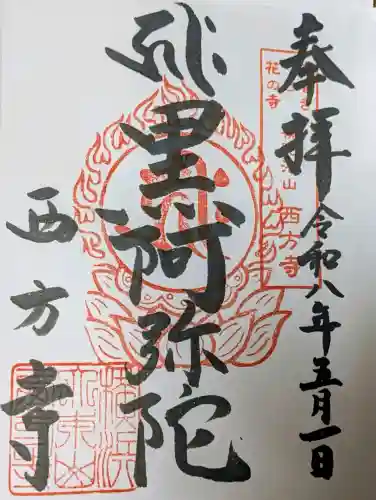 奉拝
令和八年五月一日
花の寺
西方寺
里阿弥陀
西方寺